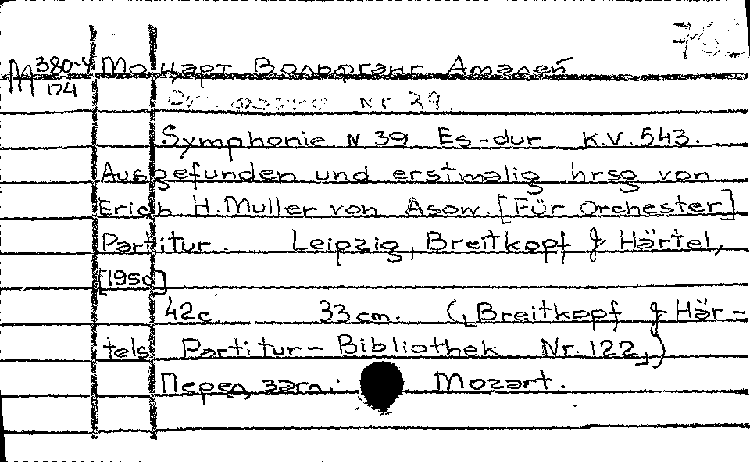 М 380-4 Моцарт Вольфганг Амадей
174
Nr 39
Symphonie N 39 Es-dur K.V. 543.
Ausgefunden und erstmalig hrsg von
Erich H. Muller von Asow. [Für Orchester]
Partitur. Leipzig, Breitkopf & Härtel,
[1950]
42c 33 cm. („Breitkopf & Här-
tels Partitur-Bibliothek Nr. 122„)
Перед загл.: Mozart.